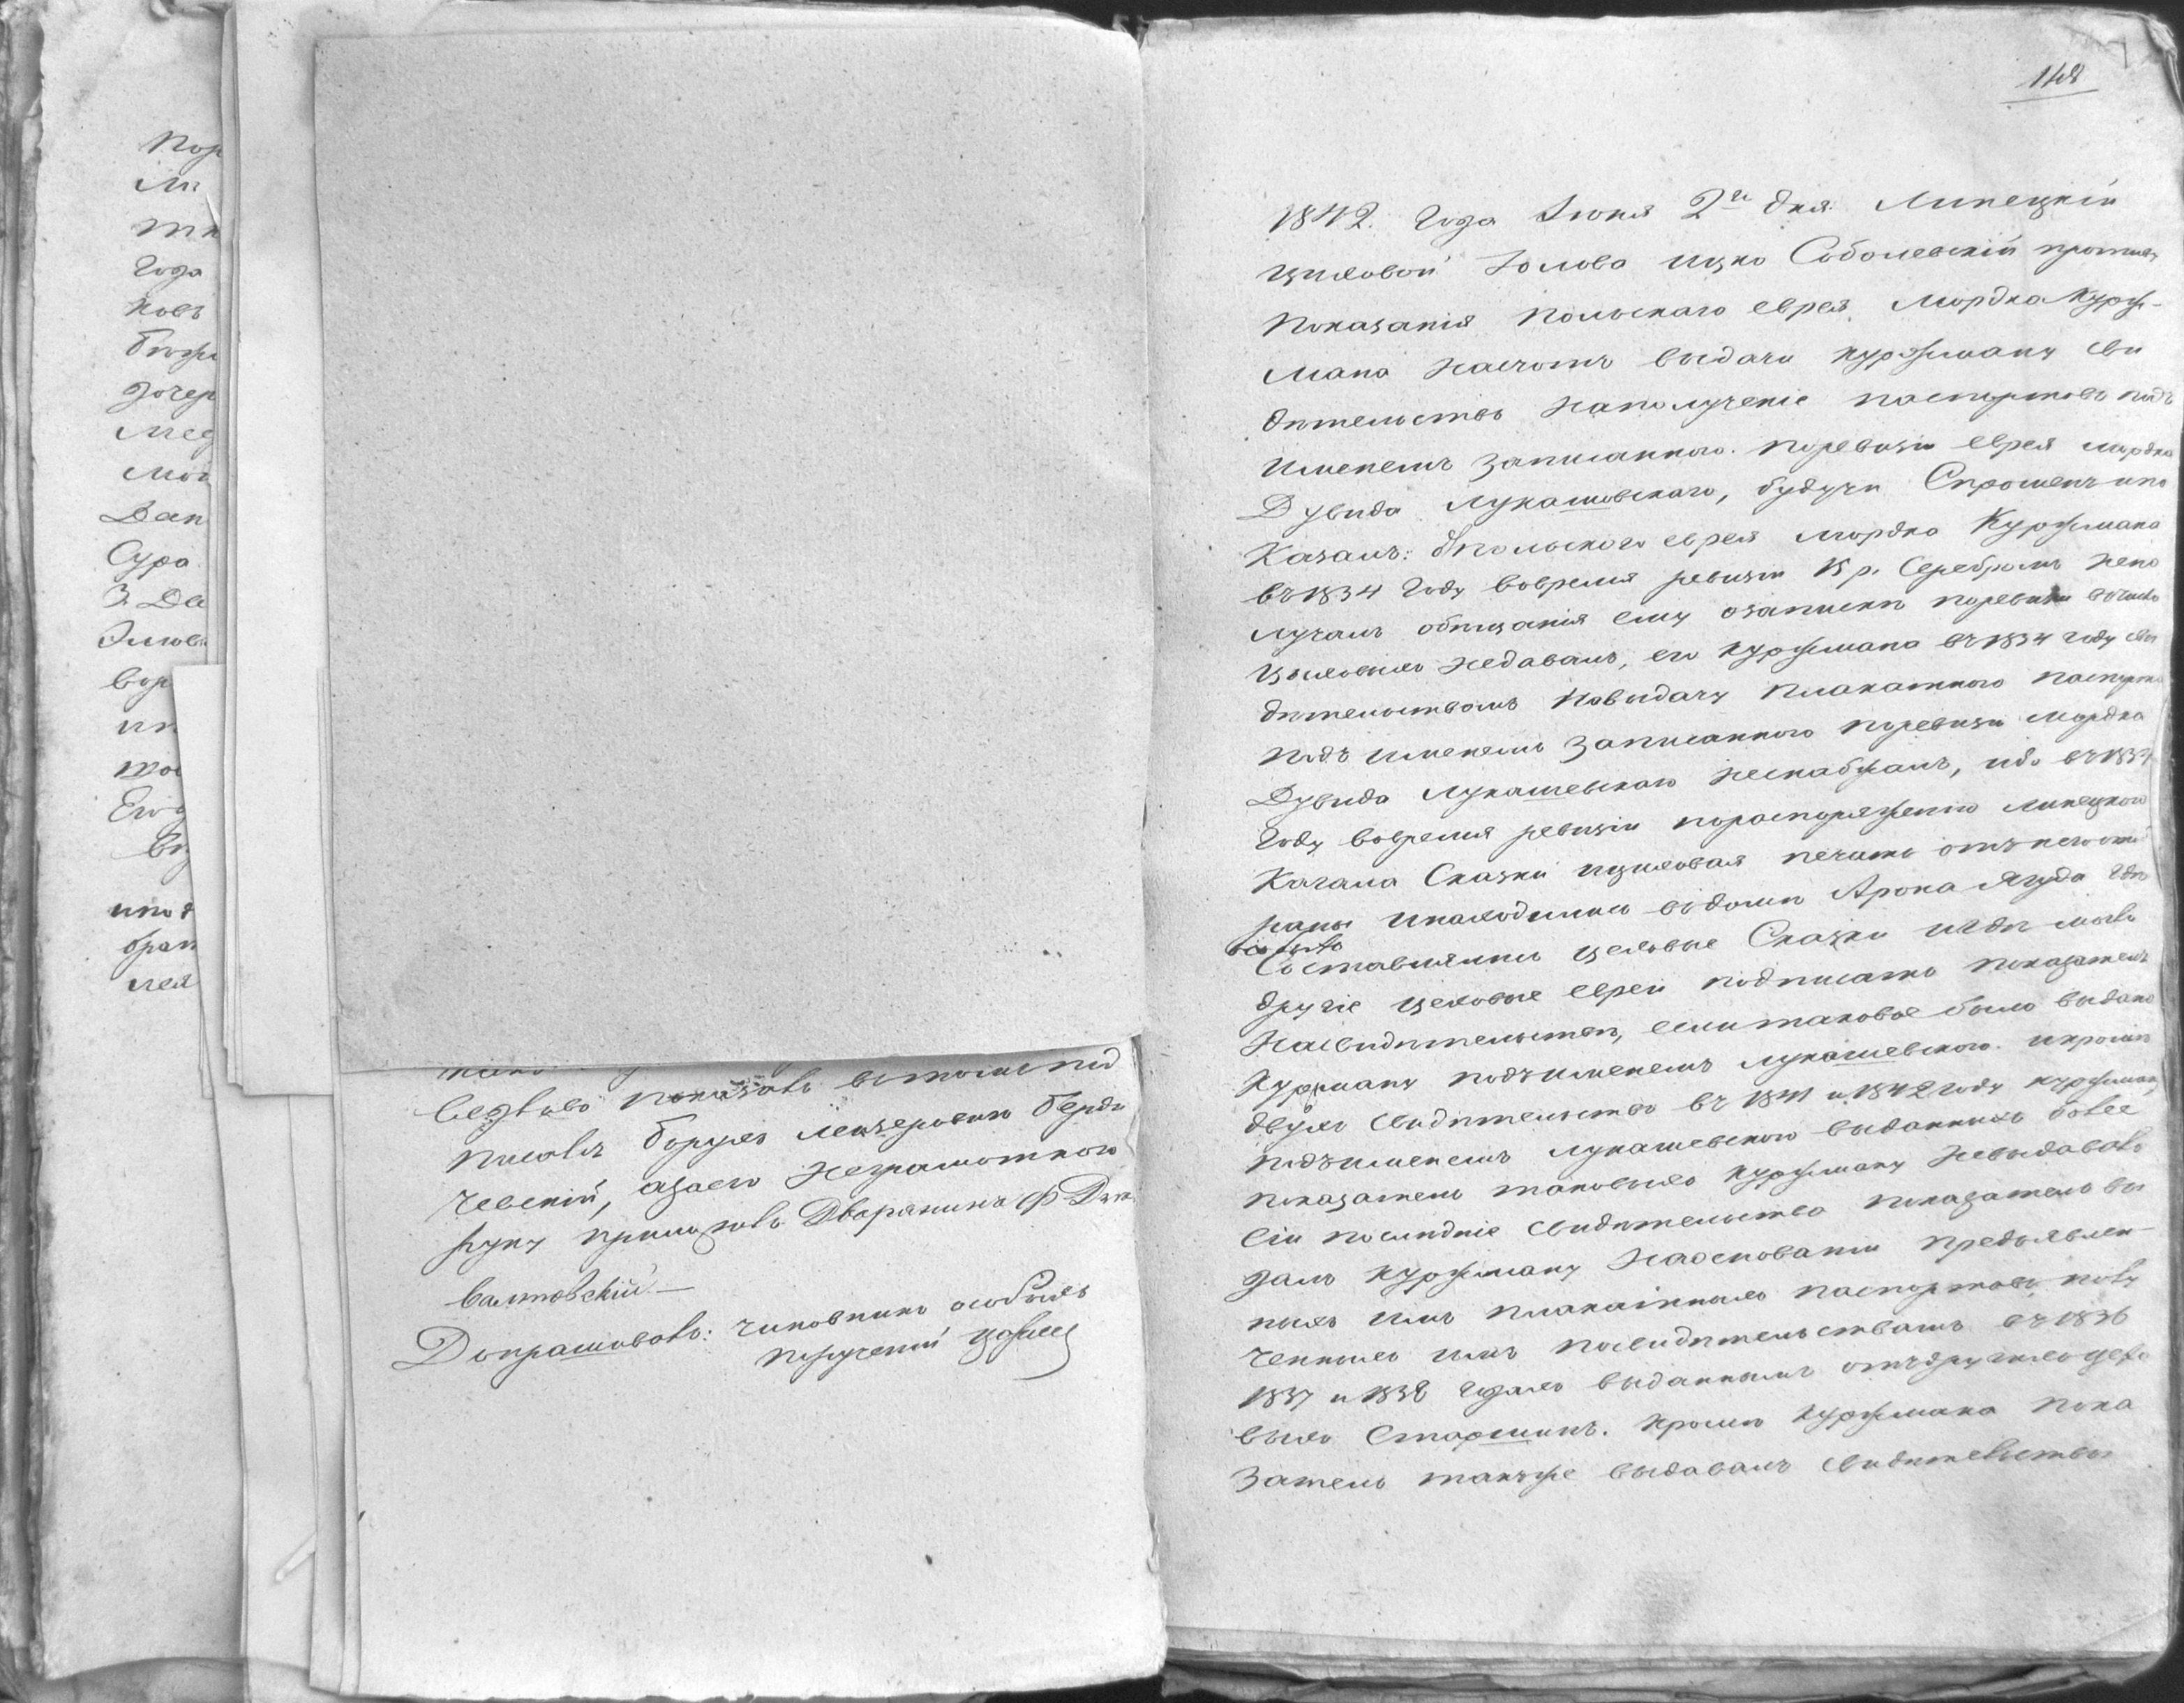 Пор
Ми
Года
Ковъ
дочер
Мед
Дан
Сура
вор
ипод
брат
лея
всего показалъ въ томъ под
писалъ Борухъ Лейзеровичъ Берди
чевскій, а за его неграмотного
руку приложилъ Дворянинъ Ф
валковскій —
Допрашивалъ: чиновникъ особыхъ
порученій
148
1842. Года Іюня 2го дня. Липецкій
цеховой Голова Ицко Соболевскій противъ
показанія польскаго еврея Мордка Курж-
мана насчотъ выдачи Куржману сви
дѣтельствъ на полученіе паспортовъ подъ
именемъ записанного по ревизіи еврея Мордка
Дувида Лукашовскаго, будучи спрошенъ по
казалъ: отъ польского еврея Мордка Куржмана
въ 1834 году вовремя ревизіи 15 р. серебромъ непо
лучалъ обѣщанія ему о запискѣ по ревизіи въ число
цеховыхъ недавалъ, его Куржмана въ 1834 году сви
дѣтельствомъ на выдачу плакатного паспорта
подъ именемъ записанного по ревизіи Мордка
Дувида Лукашевского неснабжалъ, ибо въ 1834
году вовремя ревизіи по распоряженію Липецкого
Кагала сказки и цеховая печать отъ него ото
раны и находились въ домѣ Арона Ягуда гдѣ
составлялись цеховые сказки и гдѣ могли
другіе цеховые евреи подписать показатель
на свидѣтельствѣ, если таковое было выдано
Куржману подъ именемъ Лукашевского. и кромѣ
двухъ свидѣтельствъ въ 1841 и 1842 году Куржману
подъ именемъ Лукашевского выданныхъ болѣе
показатель таковыхъ Куржману невыдавалъ
сіи послѣдніе свидѣтельства показатель вы
далъ Куржману на основаніи предъявлен-
ныхъ имъ плакатныхъ паспортовъ полу
ченныхъ имъ по свидѣтельствамъ въ 1836
1837 и 1838 годахъ выданнымъ отъ другихъ цехо
выхъ старшинъ. кромѣ Куржмана пока
затель также выдавалъ свидѣтельствы